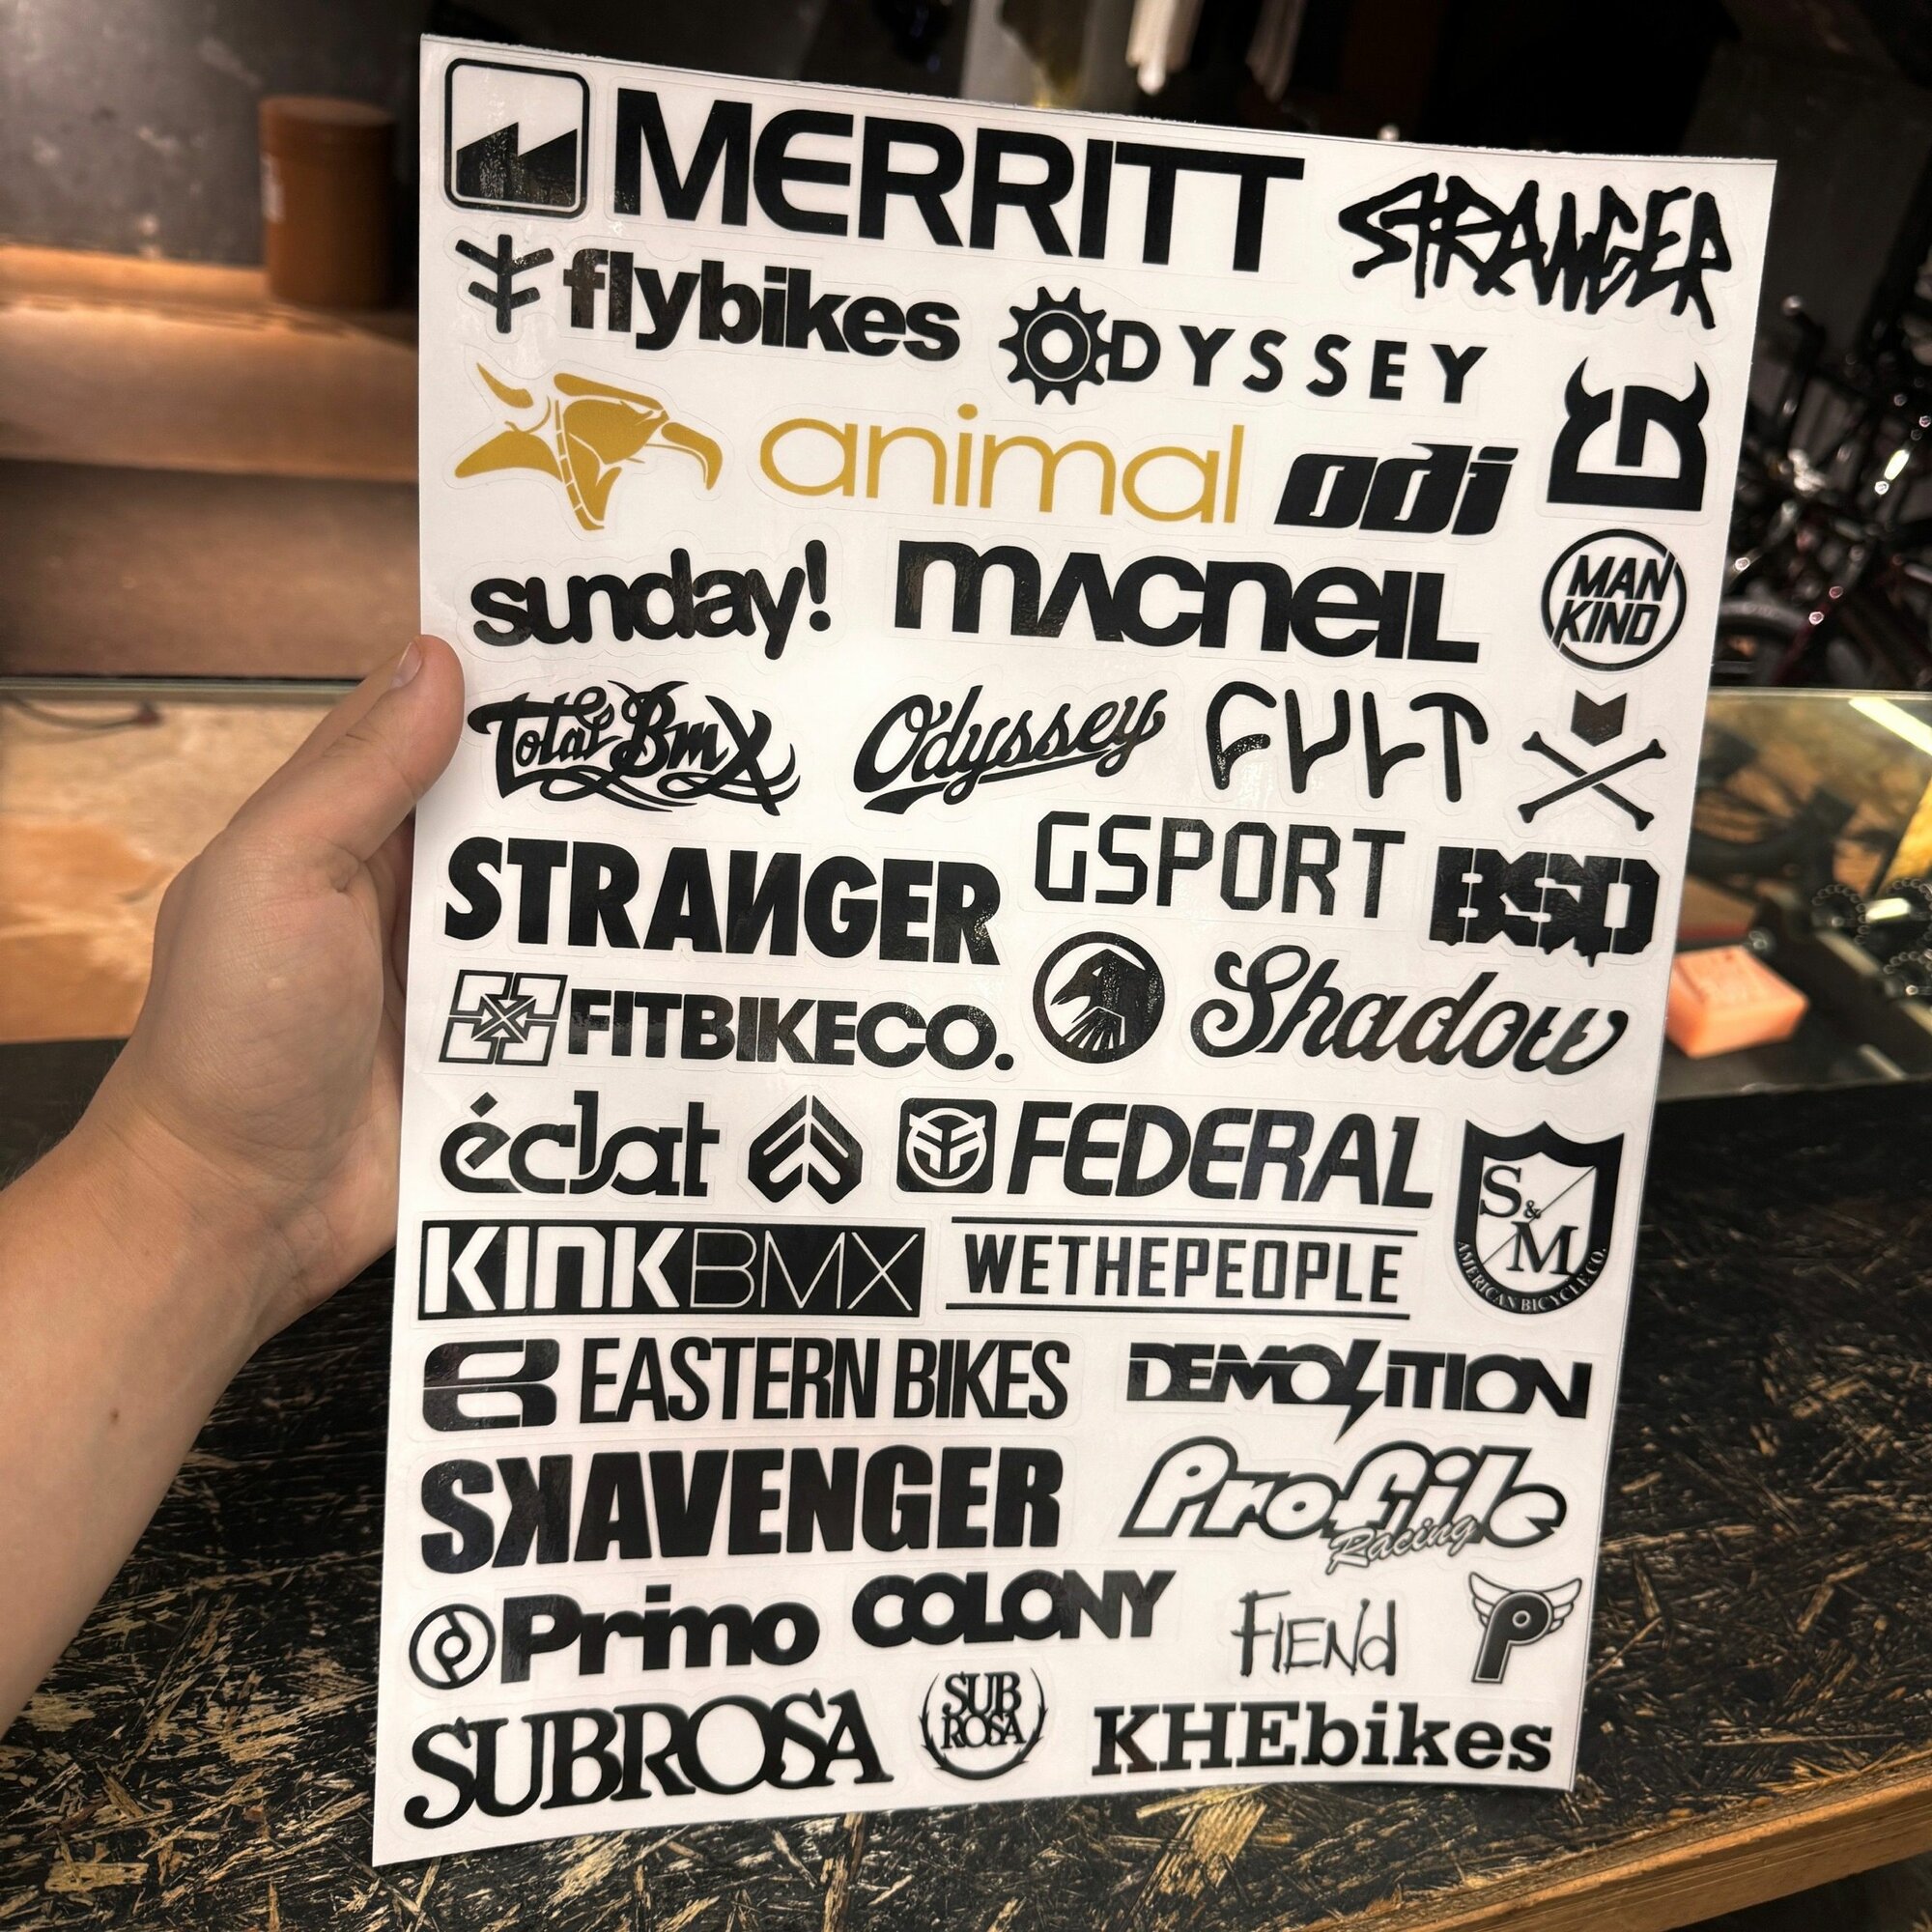 MERRITT
STRANGER
flybikes
ODYSSEY
animal
odi
sunday!
macneil
MAN
KIND
Total Bmx
Odyssey
CULT
STRANGER
GSPORT
BSD
FITBIKECO.
Shadow
éclat
FEDERAL
S&M
AMERICAN BICYCLE CO.
KINKBMX
WETHEPEOPLE
EASTERN BIKES
DEMOLITION
SKAVENGER
Profile
Racing
Primo
COLONY
FIEND
P
SUBROSA
SUB
ROSA
KHEbikes